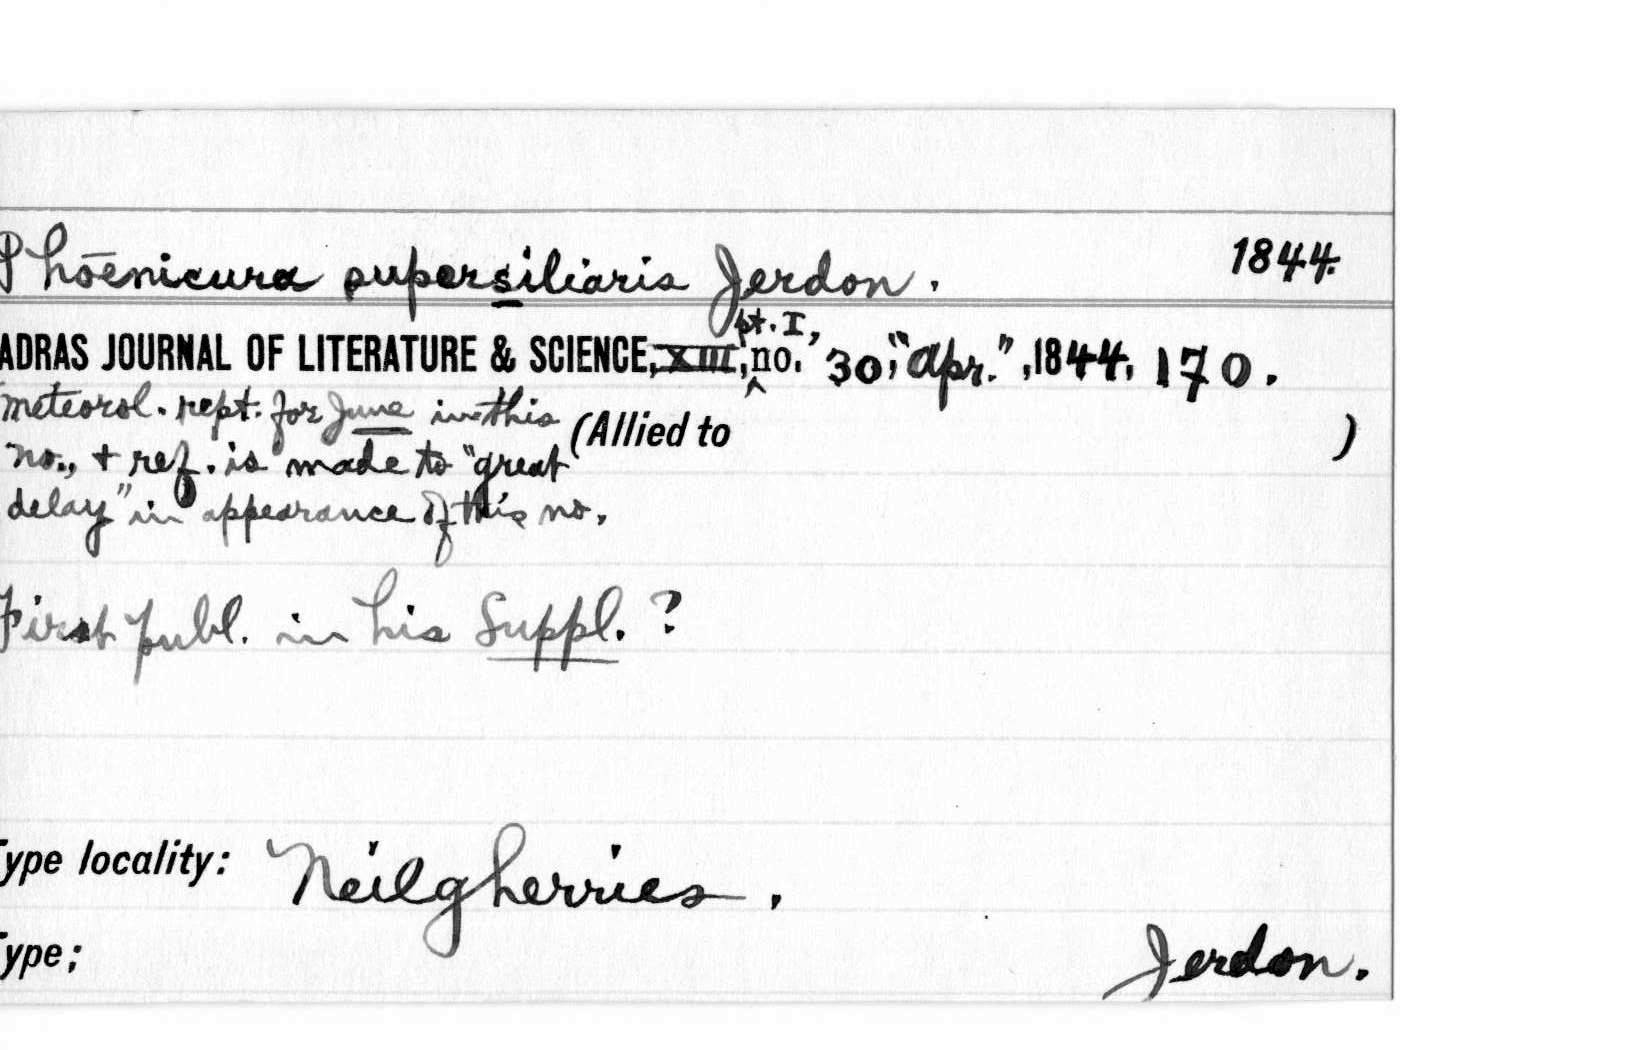 Phōenicura supersiliaris Jerdon. 1844.
pt. I,
ADRAS JOURNAL OF LITERATURE & SCIENCE, XIII, no. 30, "Apr.", 1844, 170.
meteorol. rept. for June in this (Allied to )
no., + ref. is made to "great
delay" in appearance of this no.
First publ. in his Suppl. ?
Type locality: Neilgherries.
Type; Jerdon.